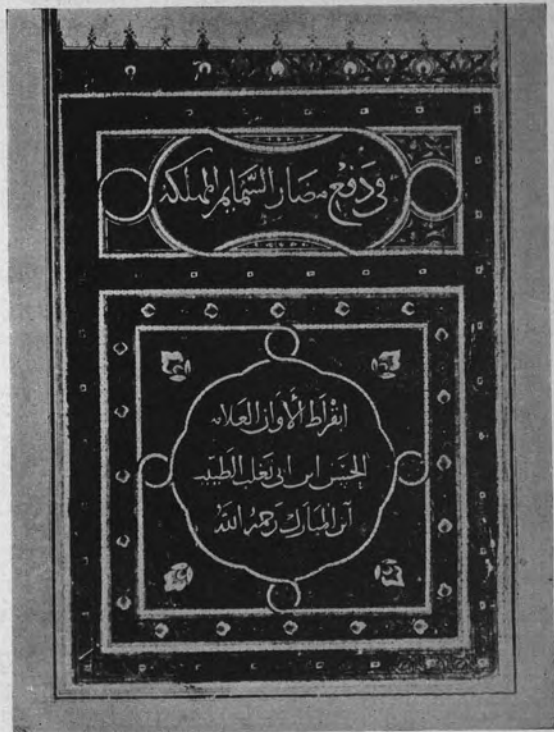 فى دَفْعِ مضار السَّمَايم المهلكة
ابقراط الأَوَان العَلامه
الحسَن ابن ابى تغلب الطبيب
ابن المبَارك رَحمهُ اللهُ